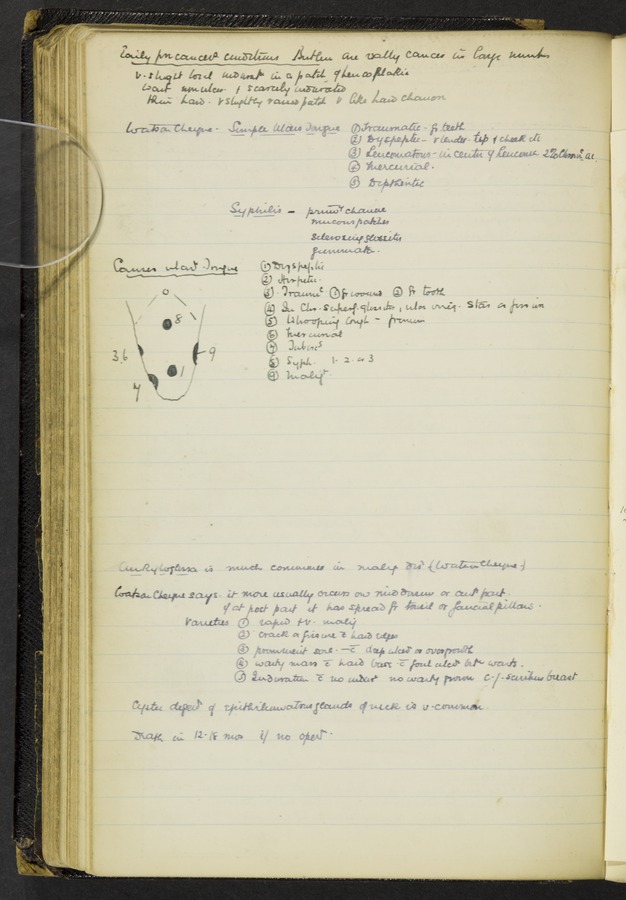 Early pre cancerᵗ conditions Butlin are really cancer in large number
v. slight local indurat in a patch of leucoplakia
Wart numbers & scarcely indurated
thin hard. v slightly raised patch v like hard chancre
Watson Cheyne. Simple Ulcers Tongue ① Traumatic - fr teeth
② Dyspeptic - v tender. tip & cheek etc
③ Leucomatous - in center of leucoma
④ Mercurial.
⑤ Diphtheritic
Syphilis - primʸ chancre
mucous patches
sclerosing glossitis
gummata.
Causes ulcerⁿ Tongue ① Dyspeptic
② Herpetic
③ Traumᶜ ① fr wound ② fr tooth
④ In Chr. superf. glossitis, ulcer orig. star or fissure
⑤ Whooping Cough - fraenum
⑥ Mercurial
⑦ Tubercˢ
⑧ Syph. 1. 2. or 3
⑨ Maligᵗ
8
3,6 9
1
7
Ankyloglossia is much commoner in malig dis (Watson Cheyne)
Watson Cheyne says. it more usually occurs on mid dorsum or ant part.
if at post part it has spread fr tonsil or faucial pillars.
Varieties ① rapid + v. malig
② crack or fissure c̄ hard edges
③ prominent sore - c̄ deep ulcer or overgrowth
④ warty mass c̄ hard base - c̄ foul ulcer btⁿ warts.
⑤ Induration c̄ no ulcer no warty growth c-f. scirrhus breast
Cystic degenⁿ of epitheliomatous glands of neck is v. common.
Death in 12-18 mos if no operⁿ.